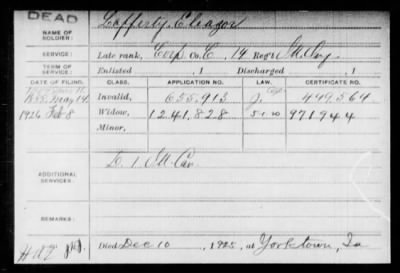 DEAD
NAME OF SOLDIER: Lafferty, Eleazor
SERVICE: Late rank, Corp. Co. E, 14 Reg't Ill. Inf.
TERM OF SERVICE: Enlisted , 1 Discharged , 1
DATE OF FILING. CLASS. APPLICATION NO. LAW. CERTIFICATE NO.
1888 May 14. Invalid, 655,913 J. 449,564
1926 Feb 8 Widow, 1,241,828 5-1-20 971944
Minor,
ADDITIONAL SERVICES: D. 1 Ill. Cav.
REMARKS:
Died Dec 10, 1925, at Yorktown, Ia